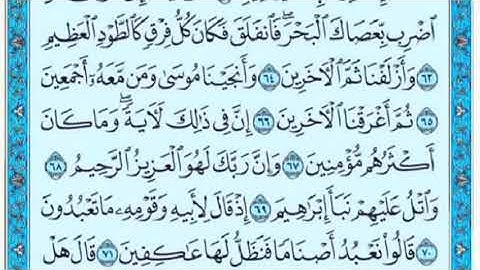 ٱضْرِب بِّعَصَاكَ ٱلْبَحْرَ ۖ فَٱنفَلَقَ فَكَانَ كُلُّ فِرْقٍ كَٱلطَّوْدِ ٱلْعَظِيمِ
٦٣ وَأَزْلَفْنَا ثَمَّ ٱلْـَٔاخَرِينَ ٦٤ وَأَنجَيْنَا مُوسَىٰ وَمَن مَّعَهُۥٓ أَجْمَعِينَ
٦٥ ثُمَّ أَغْرَقْنَا ٱلْـَٔاخَرِينَ ٦٦ إِنَّ فِى ذَٰلِكَ لَـَٔايَةً ۖ وَمَا كَانَ
أَكْثَرُهُم مُّؤْمِنِينَ ٦٧ وَإِنَّ رَبَّكَ لَهُوَ ٱلْعَزِيزُ ٱلرَّحِيمُ ٦٨
وَٱتْلُ عَلَيْهِمْ نَبَأَ إِبْرَٰهِيمَ ٦٩ إِذْ قَالَ لِأَبِيهِ وَقَوْمِهِۦ مَا تَعْبُدُونَ
٧٠ قَالُوا۟ نَعْبُدُ أَصْنَامًا فَنَظَلُّ لَهَا عَـٰكِفِينَ ٧١ قَالَ هَلْ